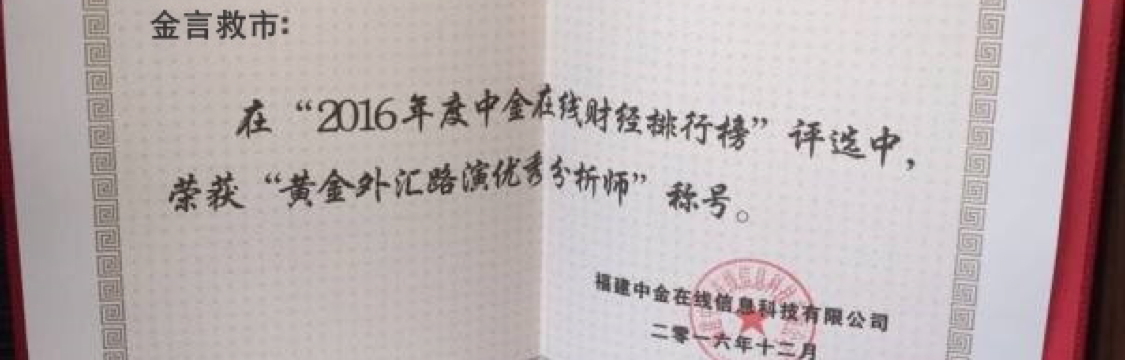 金言救市:
在“2016年度中金在线财经排行榜”评选中,
荣获“黄金外汇路演优秀分析师”称号。
福建中金在线信息科技有限公司
二零一六年十二月